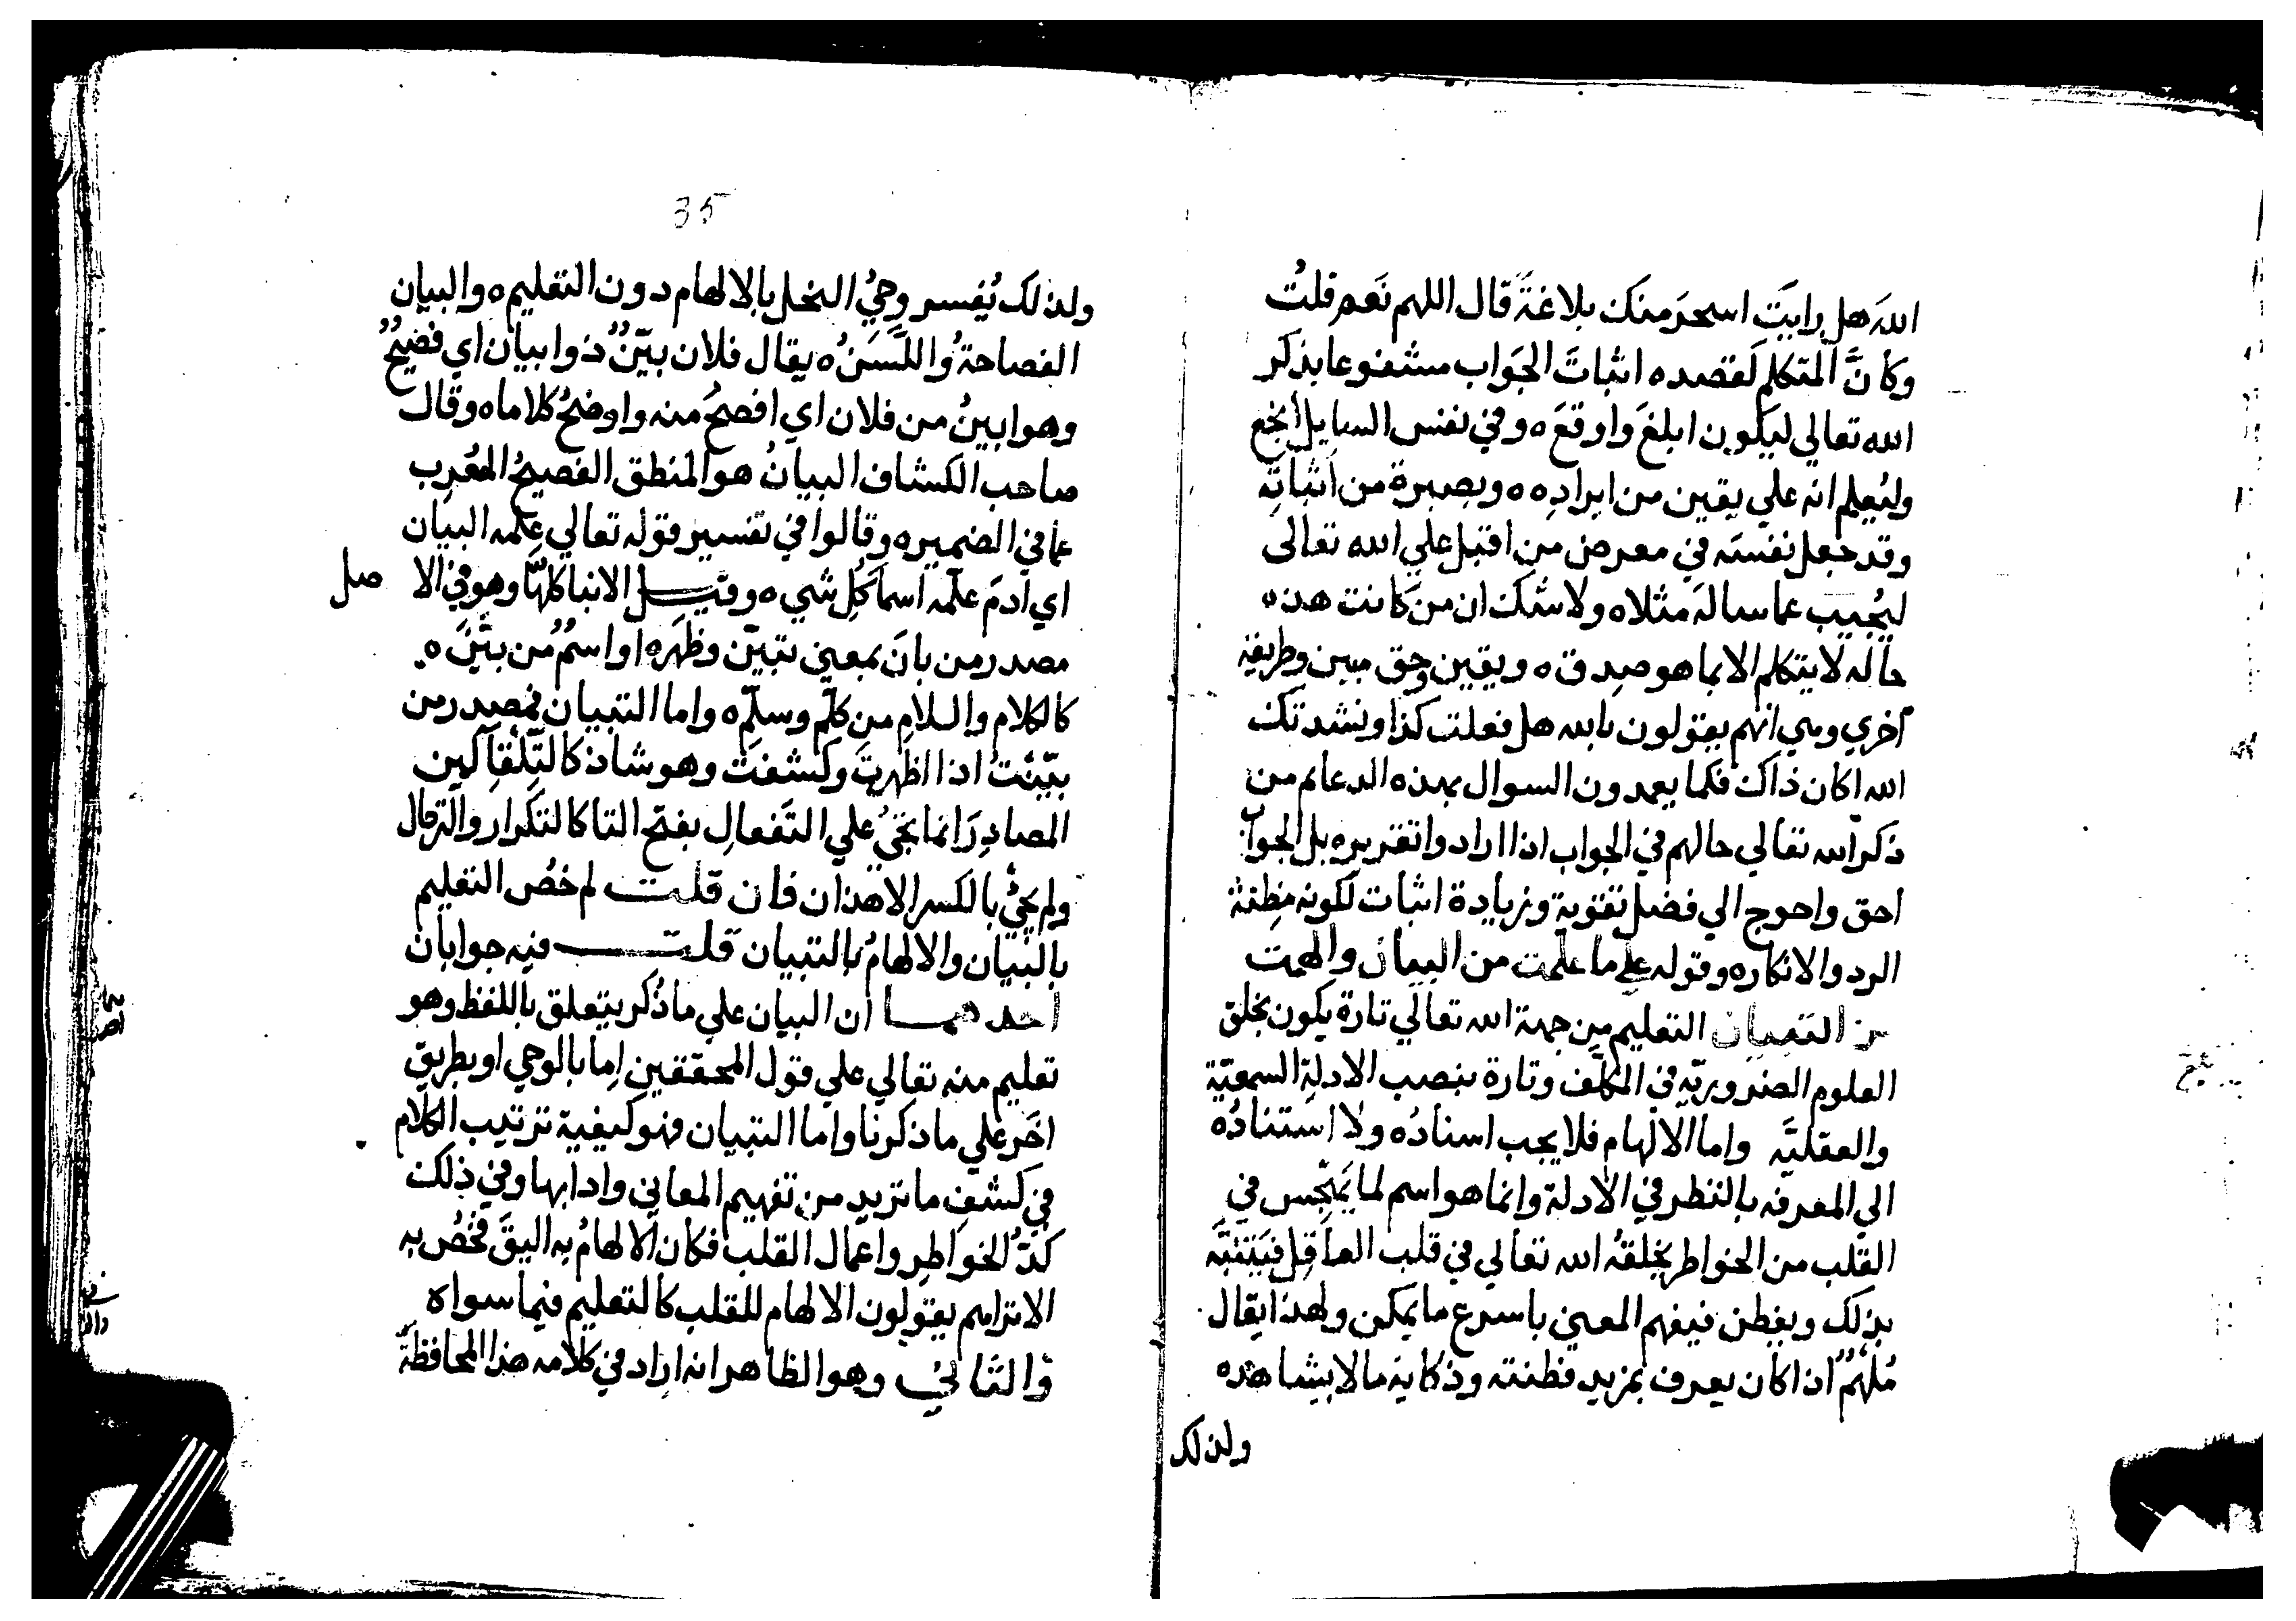 الله هل رايت اسحر منك بلاغة قال اللهم نعم قلت
وكانّ المتكلم لقصده اثبات الجواب مشفوعا بذكر
الله تعالي ليكون ابلغ واوقع ه وفي نفس السايل انجع
وليُعلم انه علي يقين من ايرادِه ه وبصيرة من اثباتِه
وقد جعل نفسَه في معرض من اقبل علي الله تعالى
ليُجيب عما ساله مثلا ه ولا شك ان من كانت هذه
حاله لا يتكلم الا بما هو صدق ه ويقين وحق مبين وطريقة
اخري وهي انهم يقولون بالله هل فعلت كذا ونشدتك
الله اكان ذاك فكما يعمدون السوال بهذه الدعايم من
ذكر الله تعالي حالهم في الجواب اذا ارادوا تقريره بل الجواب
احق واحوج الي فضل تقوية وزيادة اثبات لكونه مظنة
الرد والانكار ه وقوله علي ما علمت من البيان والهمت
من التبيان التعليم من جهة الله تعالي تارة يكون بخلق
العلوم الضروريّه في المكلّف وتارة بنصب الادلة السمعيّة
والعقليَّه واما الالهام فلا يجب اسناده ولا استناده
الي المعرفه بالنظر في الادلة وانما هو اسم لما يهجس في
القلب من الخواطر بخلقه الله تعالي في قلب العاقل فيتنبّه
بذلك ويفطن فيفهم المعني باسرع ما يمكن ولهذا يقال
مُلهَمٌ اذا كان يعرف بمزيد فطنته وذكايه ما لا يشاهده
ولذلك
35
ولذلك يُفسر وحيُ النحل بالالهام دون التعليم ه والبيان
الفصاحةُ واللَّسَنُ ه يقال فلان بيّنٌ ذوا بيان اي فصيحٌ
وهو ابينُ من فلان اي افصحُ منه واوضحُ كلاما ه وقال
صاحب الكشاف البيانُ هو المنطق الفصيحُ المُعرِب
عما في الضمير ه وقالوا في تفسير قوله تعالي علّمه البيان
اي ادمَ علّمه اسما كُلِ شي ه وقيل الانبا كلهّا وهو في الاصل
مصدر من بانَ بمعني تبيّن وظهَر ه او اسمٌ من بيَّن ه
كالكلام والسلام من كلّم وسلّم ه واما التبيان فمصدر من
بيّنتُ اذا اظهرتَ وكشفتَ وهو شاذ كالتِّلقا لان
المصادِر انما تجيُ علي التَفعالِ بفتح التا كالتكرار والترحال
ولم يجئ بالكسر الا هذان فان قلت لم خصُ التعليم
بالبيان والالهامُ بالتبيان قلت فيه جوابان
احدهما ان البيان علي ما ذُكر يتعلق باللفظ وهو
تعليم منه تعالي علي قول المحققين اما بالوحي او بطريق
اخر علي ما ذكرنا واما التبيان فهو كيفية ترتيب الكلام
في كشف ما تريد من تفهيم المعاني وادابها وفي ذلك
كدُّ الخواطِر واعمال القلب فكان الالهامُ به اليقَ فخُصُ به
الا تراهم يقولون الالهام للقلب كالتعليم فيما سواه
والثاني وهو الظاهر انه اراد في كلامه هذا المحافظةَ